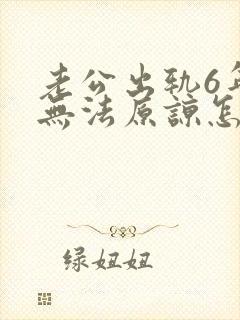 老公出轨6年
無法原諒怎
绿妞妞